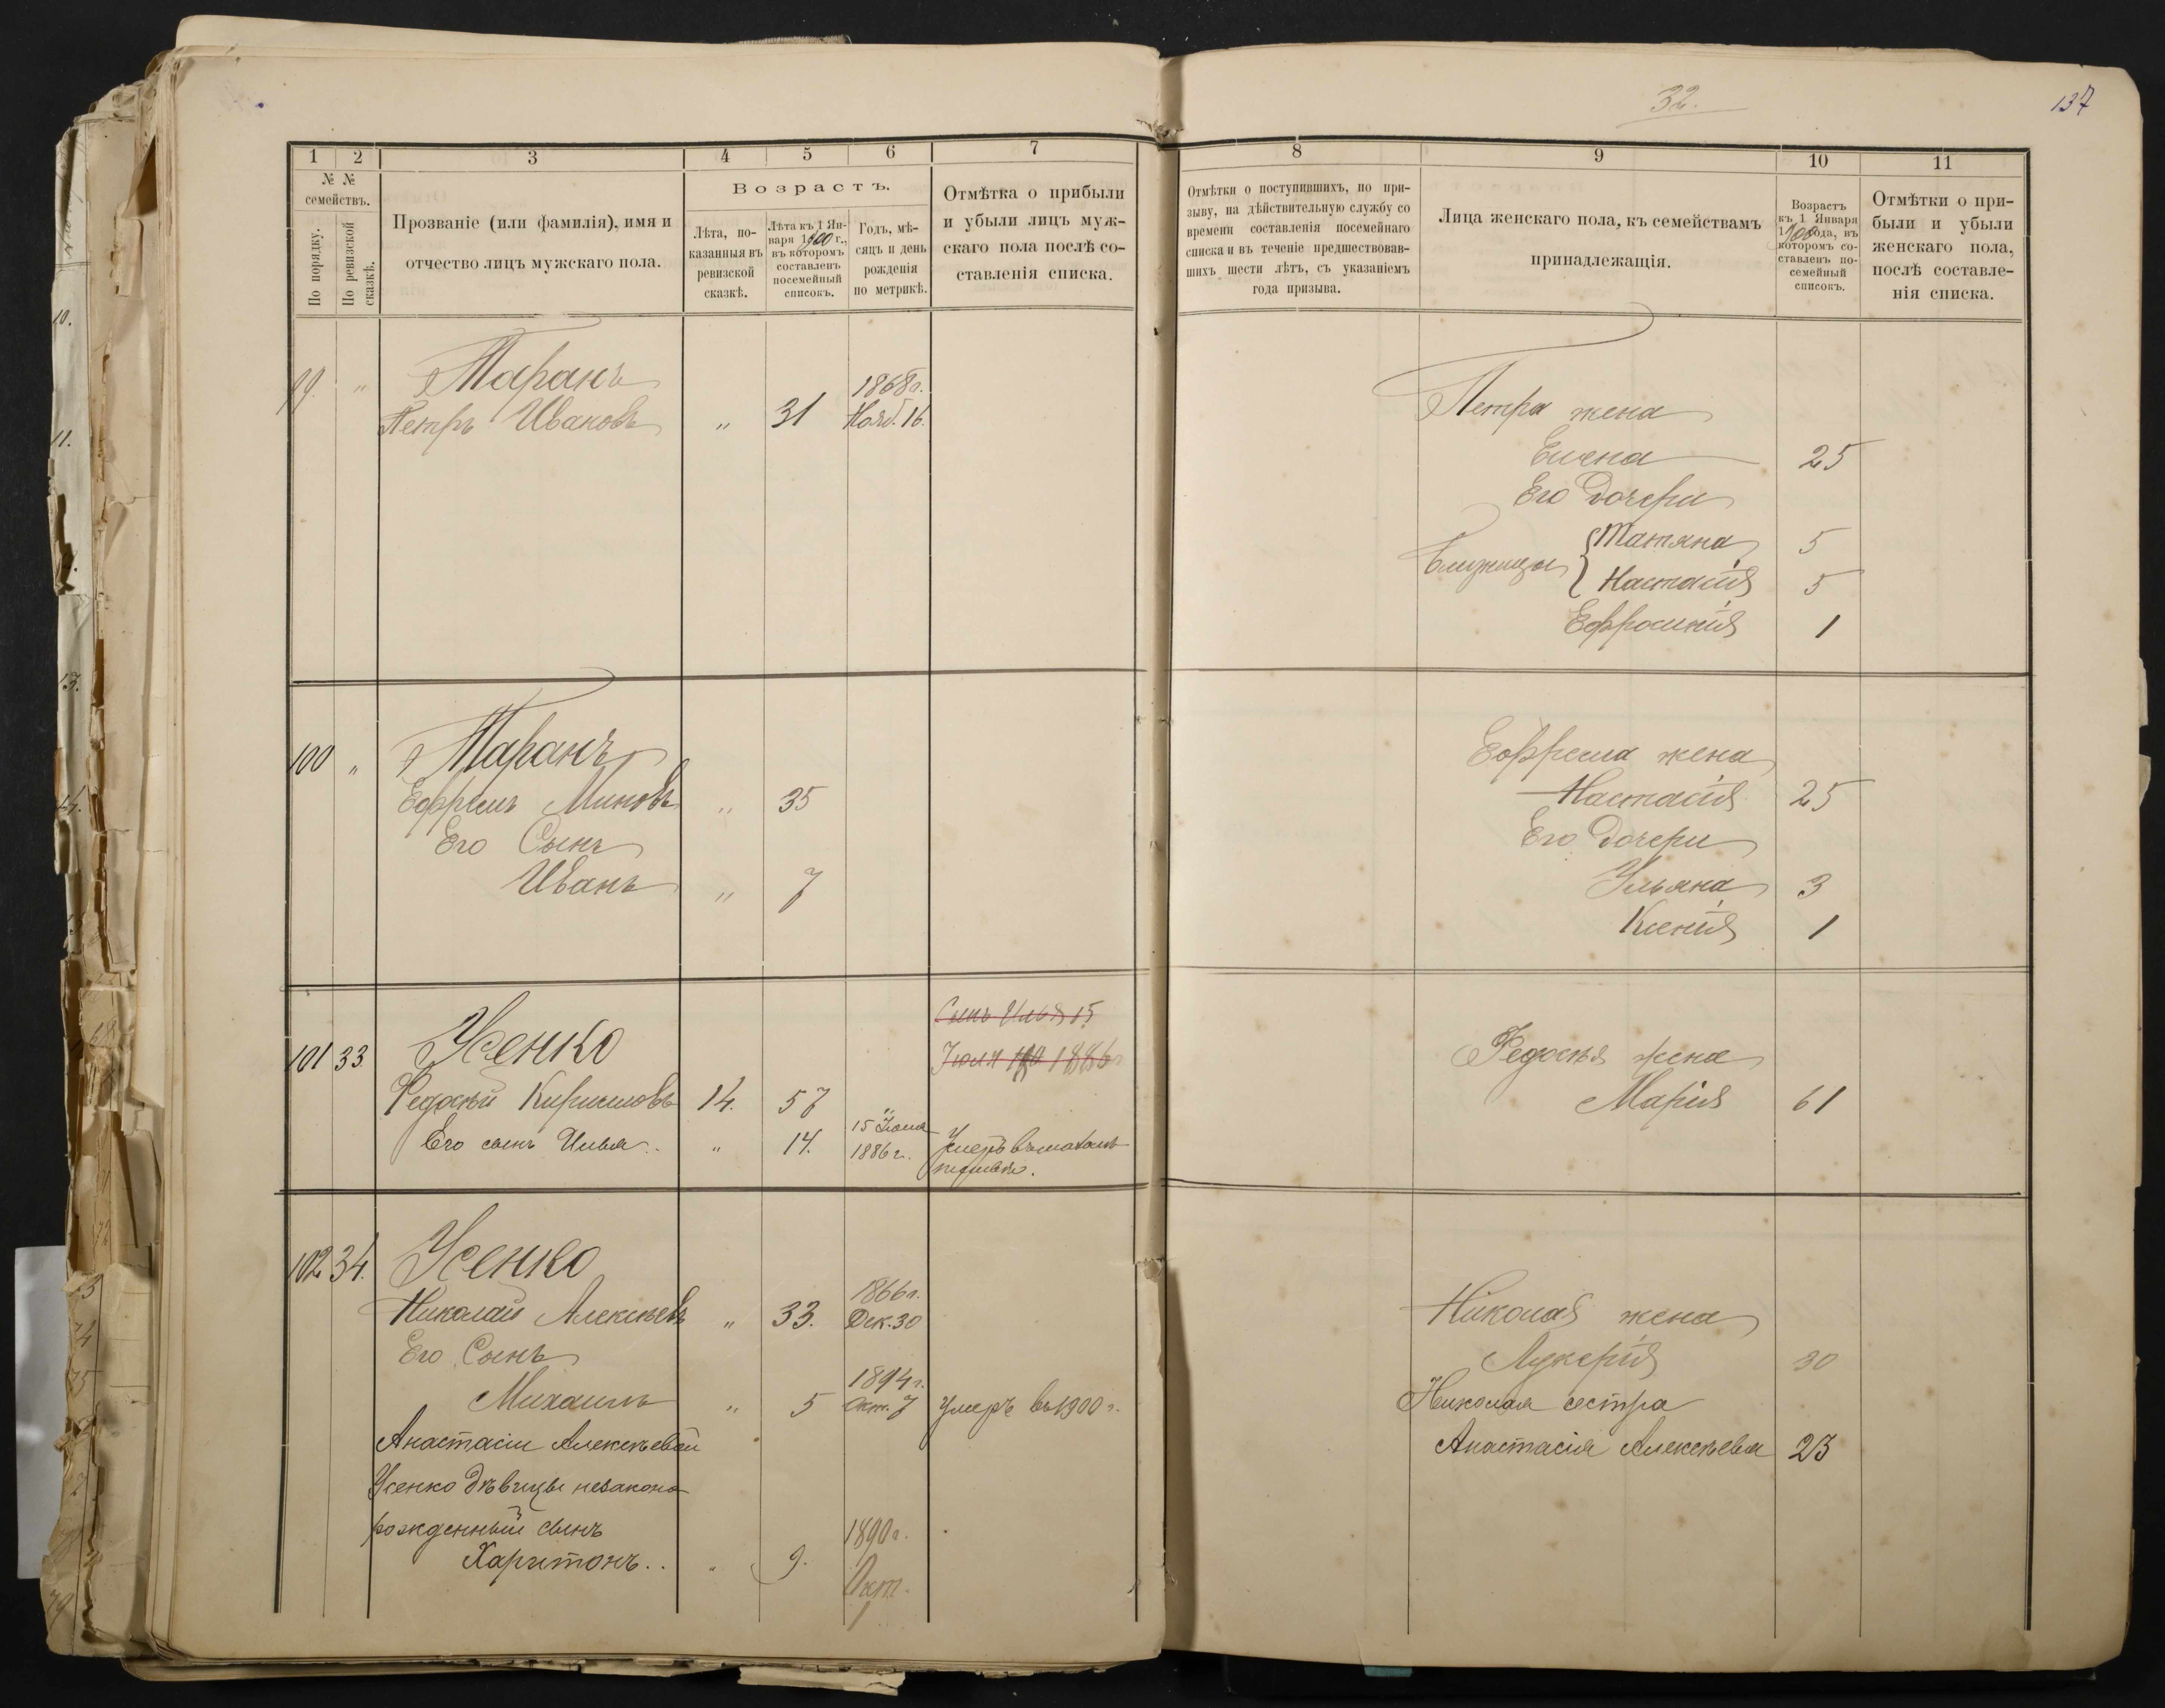 32.
137
1
2
3
4
5
6
7
8
9
10
11
№ №
семействъ.
По порядку.
По ревизской
сказкѣ.
Прозваніе (или фамилія), имя и
отчество лицъ мужскаго пола.
Возрастъ.
Лѣта, по-
казанныя въ
ревизской
сказкѣ.
Лѣта къ 1 Ян-
варя 1900 г.,
въ которомъ
составленъ
посемейный
списокъ.
Годъ, мѣ-
сяцъ и день
рожденія
по метрикѣ.
Отмѣтка о прибыли
и убыли лицъ муж-
скаго пола послѣ со-
ставленія списка.
Отмѣтки о поступившихъ, по при-
зыву, на дѣйствительную службу со
времени составленія посемейнаго
списка и въ теченіе предшествовав-
шихъ шести лѣтъ, съ указаніемъ
года призыва.
Лица женскаго пола, къ семействамъ
принадлежащія.
Возрастъ
къ 1 Января
1900 года, въ
которомъ со-
ставленъ по-
семейный
списокъ.
Отмѣтки о при-
были и убыли
женскаго пола,
послѣ составле-
нія списка.
99. " Таранъ
1868 г.
Петръ Ивановъ " 31 Нояб. 16.
Петра жена
Елена 25
Его Дочери
Близнецы
Татяна 5
Настасія 5
Ефросинія 1
100 " Таранъ
Ефремъ Миновъ " 35
Его Сынъ
Иванъ " 7
Ефрема жена
Настасія 25
Его Дочери
Ульяна 3
Ксенія 1
Сынъ Илья 15
101 33. Усенко
Іюля 1886 г
Федосѣй Кириловъ 14. 57
Его сынъ Илья .. " 14. 15 Іюля
1886 г.
Умеръ
Федосѣя жена
Марія 61
102 34. Усенко
1866 г.
Николай Алексѣевъ " 33. Дек. 30
Его Сынъ
1894 г.
Михаилъ " 5 Окт. 7 умеръ въ 1900 г.
Анастасіи Алексѣевой
Усенко дѣвицы незаконо-
рожденный сынъ
1890 г.
Харитонъ .. " 9. Окт.
1
Николая жена
Лукерія 30
Николая сестра
Анастасія Алексѣева 23